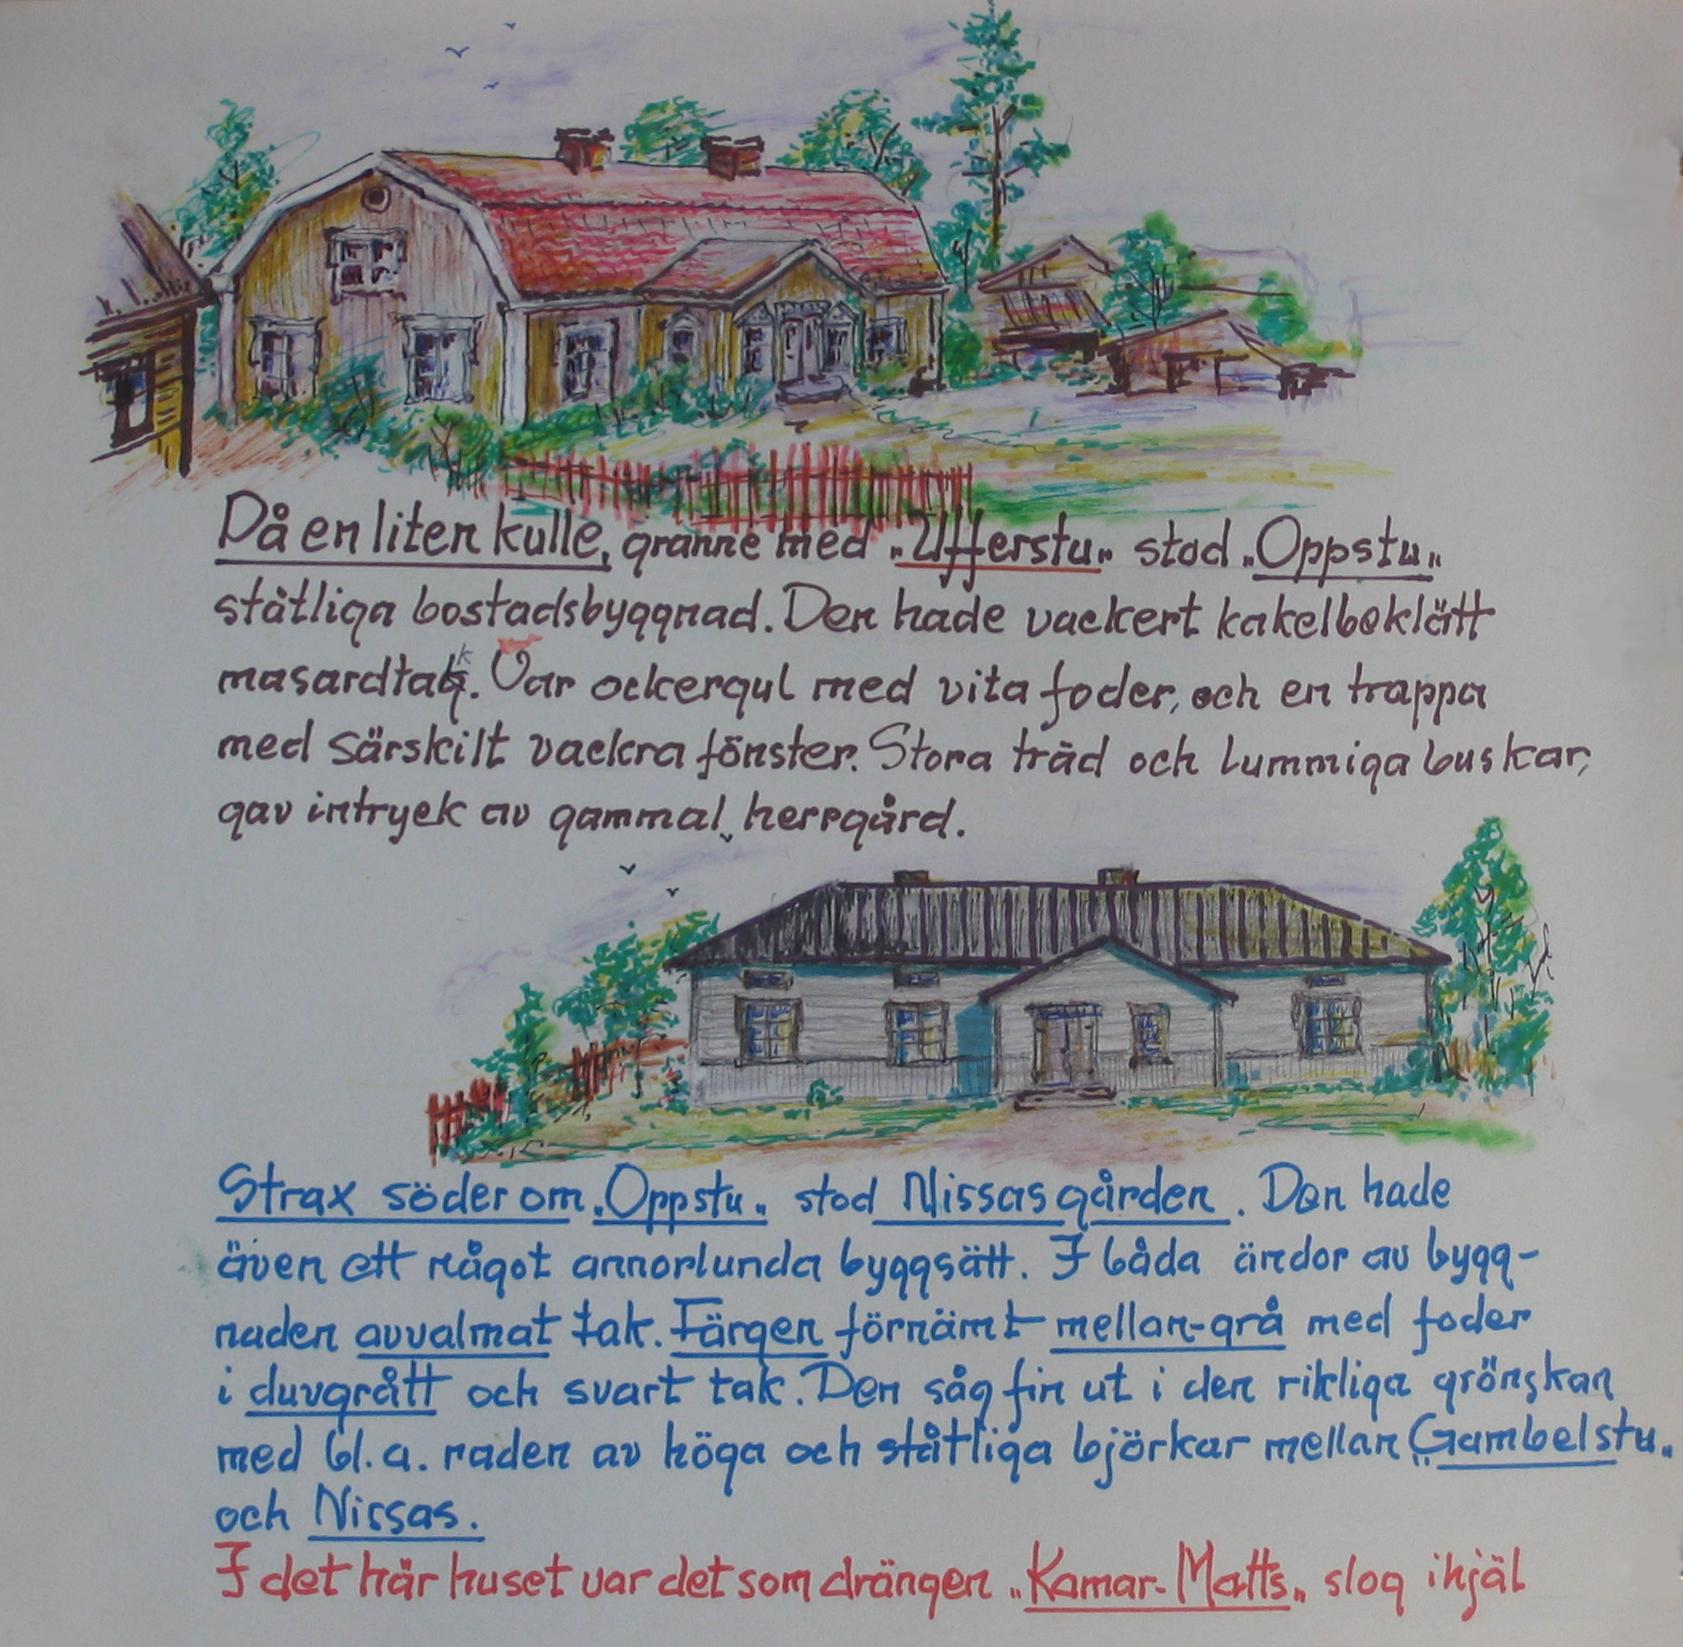 På en liten kulle, granne med „Ufferstu„ stod „Oppstu„
ståtliga bostadsbyggnad. Den hade vackert kakelbeklätt
masardtak. Var ockergul med vita foder, och en trappa
med särskilt vackra fönster. Stora träd och lummiga buskar,
gav intryck av gammal herrgård.
Strax söder om „Oppstu„ stod Nissasgården. Den hade
även ett något annorlunda byggsätt. I båda ändor av bygg-
naden avvalmat tak. Färgen förnämt mellan-grå med foder
i duvgrått och svart tak. Den såg fin ut i den rikliga grönskan
med bl.a. raden av höga och ståtliga björkar mellan „Gambelstu„
och Nissas.
I det här huset var det som drängen „Kamar-Matts„ slog ihjäl